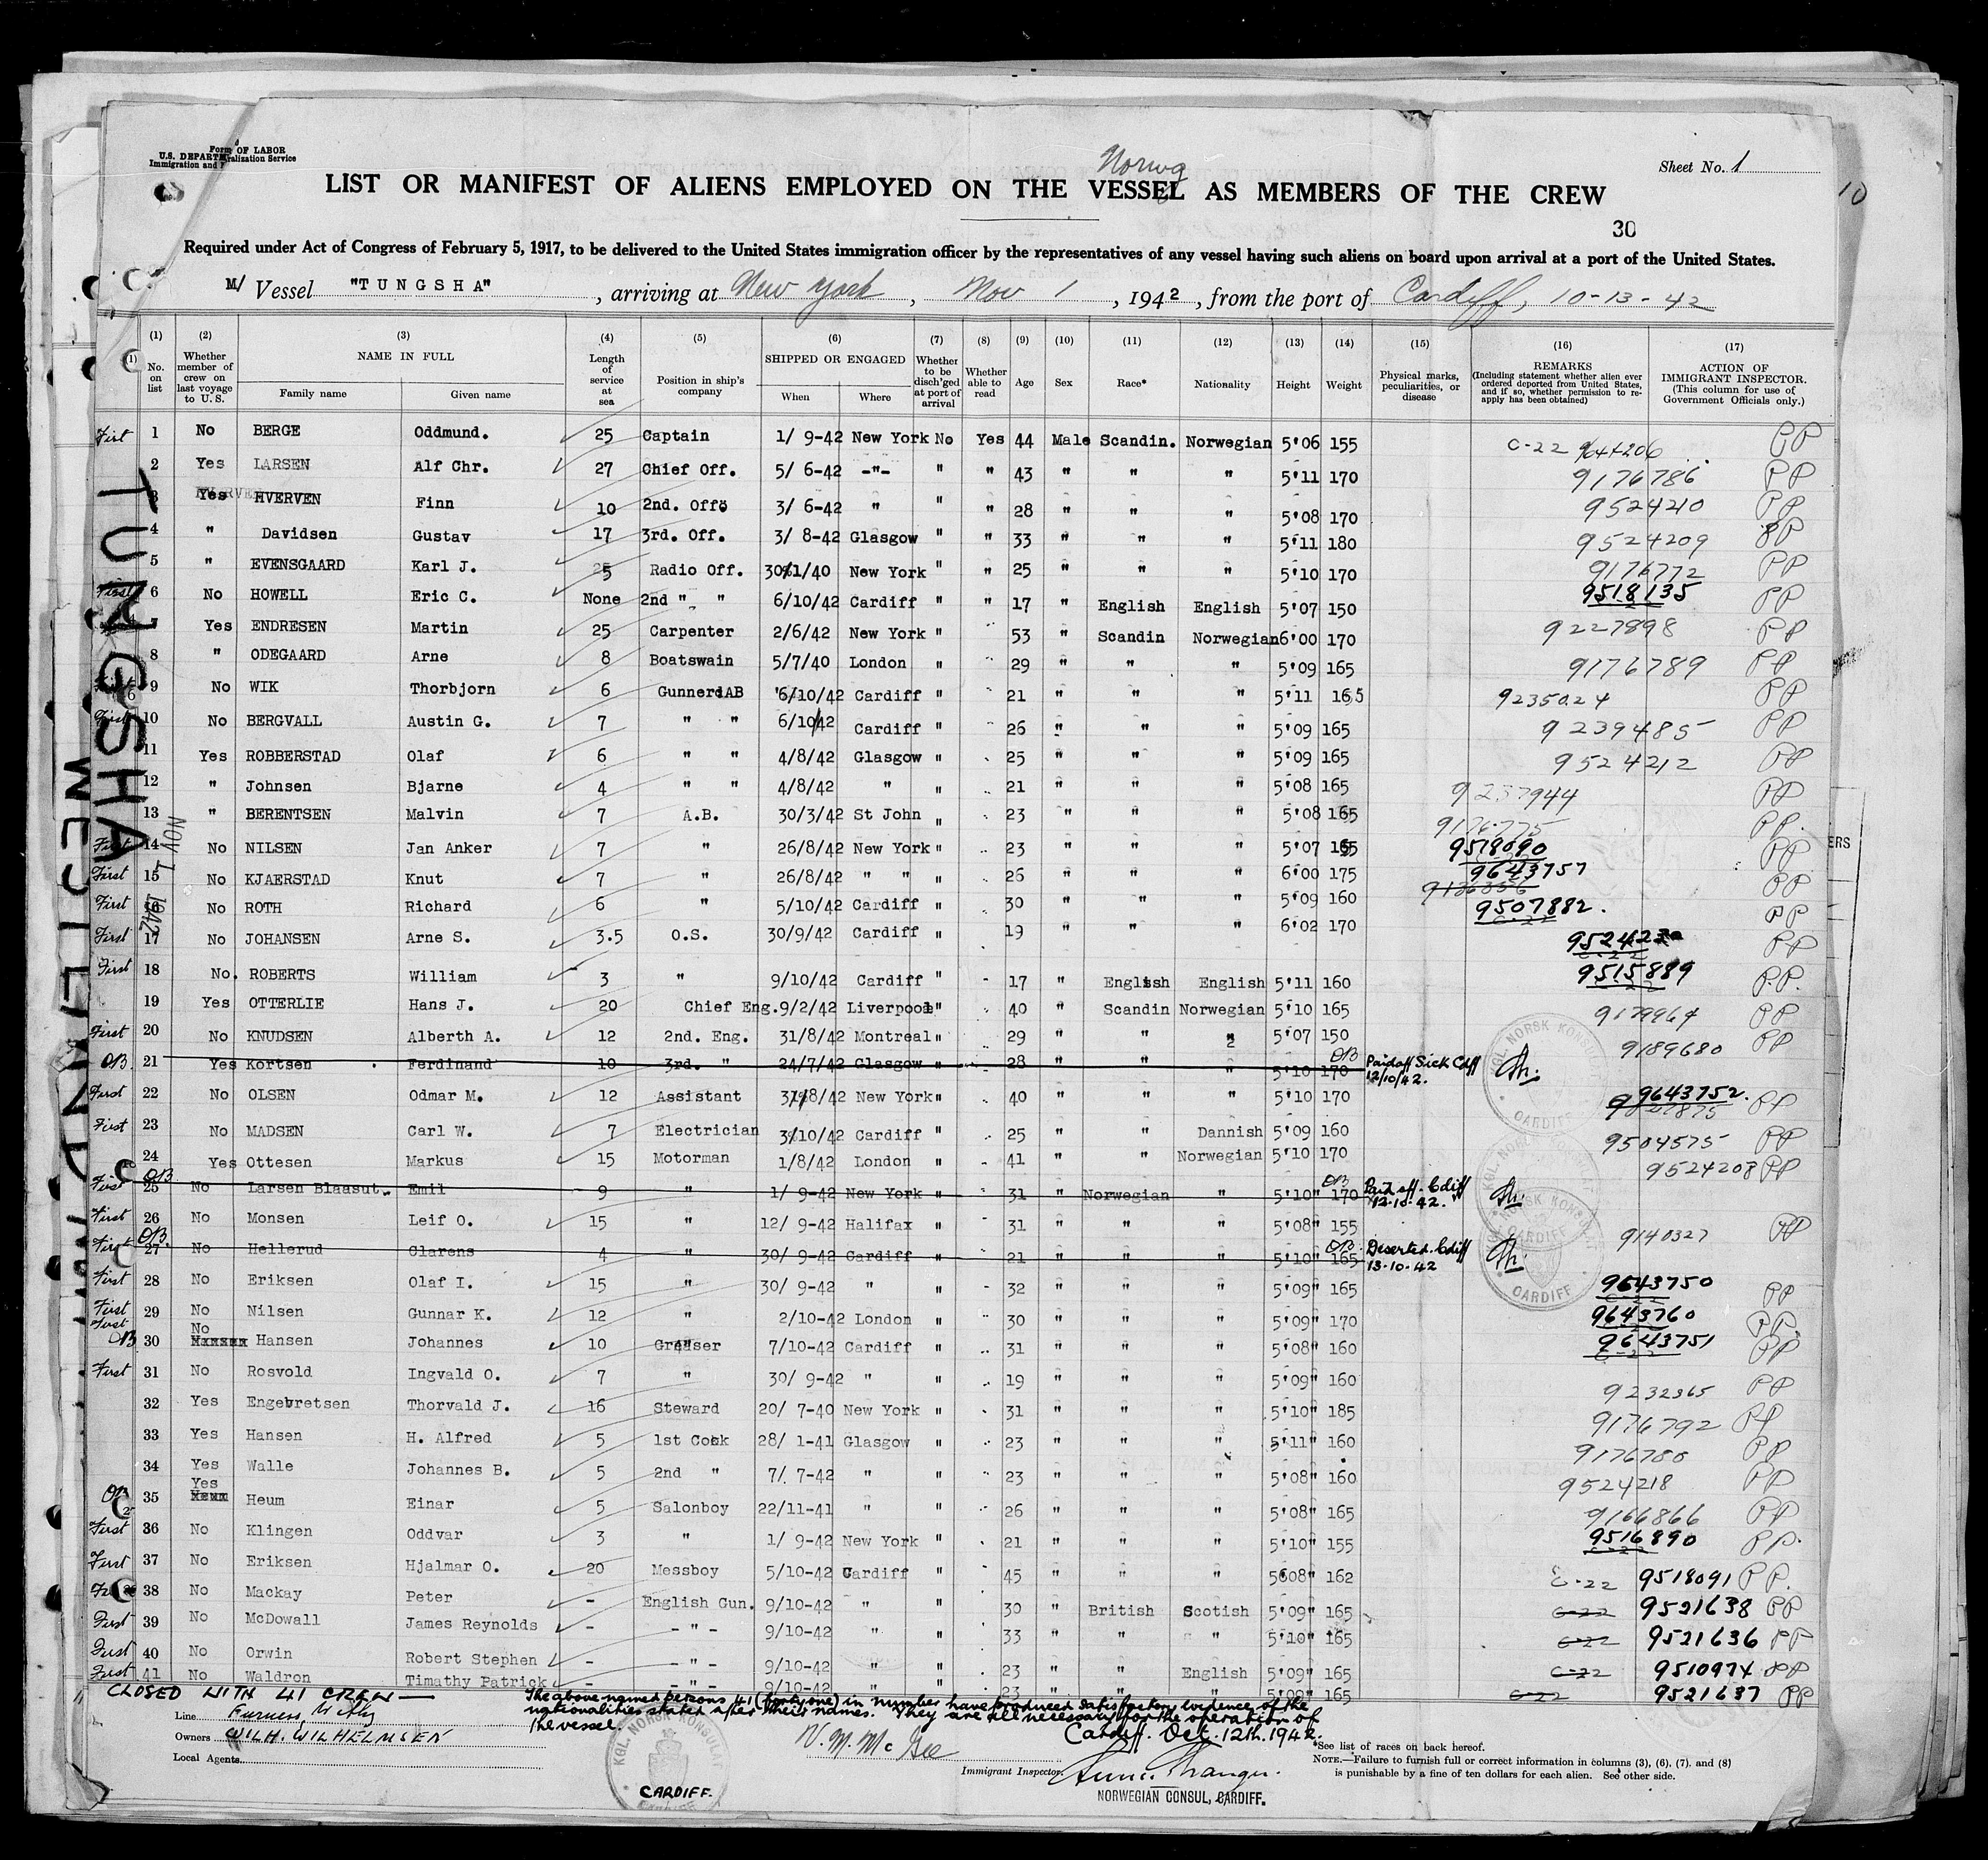 U.S. DEPARTMENT OF LABOR
Immigration and Naturalization Service
Form
Norwg
Sheet No. 1
10
LIST OR MANIFEST OF ALIENS EMPLOYED ON THE VESSEL AS MEMBERS OF THE CREW
30
Required under Act of Congress of February 5, 1917, to be delivered to the United States immigration officer by the representatives of any vessel having such aliens on board upon arrival at a port of the United States.
M/ Vessel "TUNGSHA", arriving at New York, Nov 1, 1942, from the port of Cardiff, 10-13-42
(1) (2) (3) (4) (5) (6) (7) (8) (9) (10) (11) (12) (13) (14) (15) (16) (17)
No. on list
Whether member of crew on last voyage to U. S.
NAME IN FULL
Family name Given name
Length of service at sea
Position in ship's company
SHIPPED OR ENGAGED
When Where
Whether to be disch'ged at port of arrival
Whether able to read
Age Sex Race* Nationality Height Weight
Physical marks, peculiarities, or disease
REMARKS
(Including statement whether alien ever ordered deported from United States, and if so, whether permission to reapply has been obtained)
ACTION OF IMMIGRANT INSPECTOR.
(This column for use of Government Officials only.)
First 1 No BERGE Oddmund. 25 Captain 1/ 9-42 New York No Yes 44 Male Scandin. Norwegian 5'06 155 C-22 PP
2 Yes LARSEN Alf Chr. 27 Chief Off. 5/ 6-42 -"- " " 43 " " " 5'11 170 9176786 PP
3 Yes HVERVEN Finn 10 2nd. Off. 3/ 6-42 " " " 28 " " " 5'08 170 9524210 PP
4 " Davidsen Gustav 17 3rd. Off. 3/ 8-42 Glasgow " " 33 " " " 5'11 180 9524209 PP
5 " EVENSGAARD Karl J. 25 Radio Off. 30/1/40 New York " " 25 " " " 5'10 170 9176772 PP
First 6 No HOWELL Eric C. None 2nd " " 6/10/42 Cardiff " " 17 " English English 5'07 150 9518135 PP
7 Yes ENDRESEN Martin 25 Carpenter 2/6/42 New York " 53 " Scandin Norwegian 6'00 170 9227898 PP
8 " ODEGAARD Arne 8 Boatswain 5/7/40 London " 29 " " " 5'09 165 9176789 PP
First 9 No WIK Thorbjorn 6 Gunner AB 6/10/42 Cardiff " 21 " " " 5'11 165 9235024 PP
First 10 No BERGVALL Austin G. 7 " " 6/10/42 Cardiff " 26 " " " 5'09 165 9239485 PP
11 Yes ROBBERSTAD Olaf 6 " " 4/8/42 Glasgow " 25 " " " 5'09 165 9524212 PP
12 " Johnsen Bjarne 4 " " 4/8/42 " " 21 " " " 5'08 165 9237944 PP
13 " BERENTSEN Malvin 7 A.B. 30/3/42 St John " 23 " " " 5'08 165 9176775 PP.
First 14 No NILSEN Jan Anker 7 " 26/8/42 New York " 23 " " " 5'07 165 9518090 PP
First 15 No KJAERSTAD Knut 7 " 26/8/42 " " " 26 " " " 6'00 175 9643757 PP
First 16 No ROTH Richard 6 " 5/10/42 Cardiff " 30 " " " 5'09 160 9507882. PP
First 17 No JOHANSEN Arne S. 3.5 O.S. 30/9/42 Cardiff " 19 " " " 6'02 170 9524230 PP
First 18 No. ROBERTS William 3 " 9/10/42 Cardiff " 17 " English English 5'11 160 9515889 P.P.
19 Yes OTTERLIE Hans J. 20 Chief Eng. 9/2/42 Liverpool " 40 " Scandin Norwegian 5'10 165 9179964 PP
First 20 No KNUDSEN Alberth A. 12 2nd. Eng. 31/8/42 Montreal " 29 " " " 5'07 150 9189680 PP
OB. 21 Yes Kortsen Ferdinand 10 3rd. " 24/7/42 Glasgow " 28 " " " 5'10 170 OB Paid off Sick Cdff 12/10/42.
First 22 No OLSEN Odmar M. 12 Assistant 31/8/42 New York " 40 " " " 5'10 170 9643752. PP
First 23 No MADSEN Carl W. 7 Electrician 3/10/42 Cardiff " 25 " " Dannish 5'09 160 9504575 PP
24 Yes Ottesen Markus 15 Motorman 1/8/42 London " 41 " " Norwegian 5'10 170 9524208 PP
First OB 25 No Larsen Blaasut. Emil 9 " 1/ 9-42 New York " 31 " Norwegian " 5'10" 170 OB Paid off. Cdiff 12-10-42.
First 26 No Monsen Leif O. 15 " 12/ 9-42 Halifax " 31 " " " 5'08" 155 9140327 PP
First OB. 27 No Hellerud Clarens 4 " 30/ 9-42 Cardiff " 21 " " " 5'10" 165 OB. Deserted. Cdiff 13-10-42
First 28 No Eriksen Olaf I. 15 " 30/ 9-42 " " 32 " " " 5'09" 165 9643750 PP
First 29 No Nilsen Gunnar K. 12 " 2/10-42 London " 30 " " " 5'09" 170 9643760 PP.
First OB 30 No Hansen Johannes 10 Greaser 7/10-42 Cardiff " 31 " " " 5'08" 160 9643751 PP
First 31 No Rosvold Ingvald O. 7 " 30/ 9-42 " " 19 " " " 5'09" 160 9232365 PP
32 Yes Engebretsen Thorvald J. 16 Steward 20/ 7-40 New York " 31 " " " 5'10" 185 9176792 PP
33 Yes Hansen H. Alfred 5 1st Cook 28/ 1-41 Glasgow " 23 " " " 5'11" 160 9176780 PP
34 Yes Walle Johannes B. 5 2nd " 7/ 7-42 " " 23 " " " 5'08" 160 9524218 PP
OB 35 Yes Heum Einar 5 Salonboy 22/11-41 " " 26 " " " 5'08" 165 9166866 PP
First 36 No Klingen Oddvar 3 " 1/ 9-42 New York " 21 " " " 5'10" 155 9516890 PP.
First 37 No Eriksen Hjalmar O. 20 Messboy 5/10-42 Cardiff " 45 " " " 5'08" 162 C-22 9518091 PP.
First 38 No Mackay Peter - English Gun. 9/10-42 " " 30 " British Scotish 5'09" 165 C-22 9521638 PP
First 39 No McDowall James Reynolds - -"- 9/10-42 " " 33 " " " 5'10" 165 C-22 9521636 PP
First 40 No Orwin Robert Stephen - -"- 9/10-42 " " 23 " " English 5'09" 165 C-22 9510974 PP
First 41 No Waldron Timathy Patrick - -"- 9/10-42 " " 23 " " " 5'09" 165 C-22 9521637 PP
TUNGSHA
WESTLAND
NOV 1 1942
CLOSED WITH 41 CREW
The above named persons 41 (forty one) in number have produced satisfactory evidence of the
nationalities stated after their names. They are all necessary for the operation of
the vessel.
Cardiff. Oct. 12th. 1942.
Line Furness, Withy
Owners WILH. WILHELMSEN
Local Agents
KGL. NORSK KONSULAT
CARDIFF.
N. M. McGee
Immigrant Inspector.
NORWEGIAN CONSUL, CARDIFF.
*See list of races on back hereof.
NOTE.—Failure to furnish full or correct information in columns (3), (6), (7), and (8)
is punishable by a fine of ten dollars for each alien. See other side.